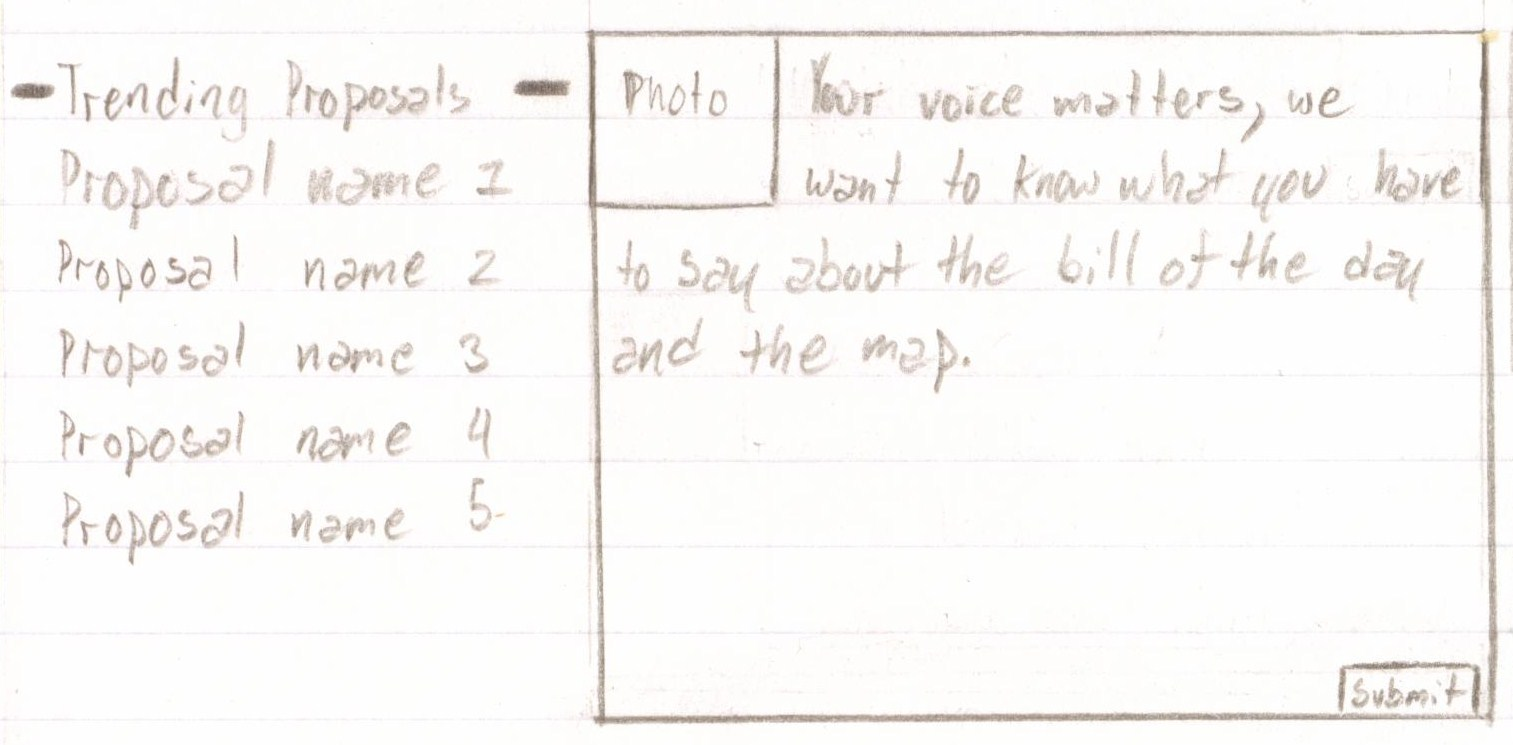 - Trending Proposals -
Proposal name 1
Proposal name 2
Proposal name 3
Proposal name 4
Proposal name 5
Photo
Your voice matters, we
want to know what you have
to say about the bill of the day
and the map.
Submit